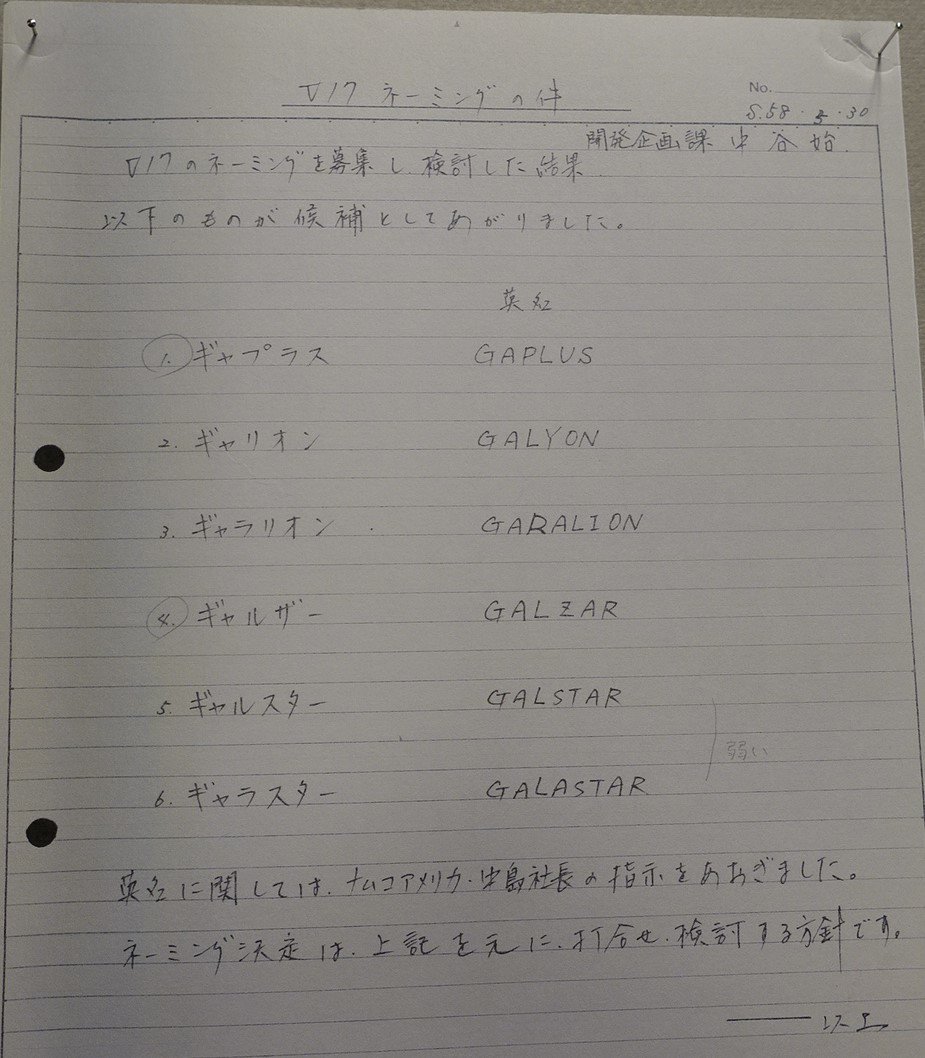 V17 ネーミングの件
No.
S.58.5.30
開発企画課 中谷始.
V17のネーミングを募集し、検討した結果
以下のものが候補としてあがりました。
英名
1. ギャプラス GAPLUS
2. ギャリオン GALYON
3. ギャラリオン GARALION
4. ギャルザー GALZAR
5. ギャルスター GALSTAR
弱い
6. ギャラスター GALASTAR
英名に関しては、ナムコアメリカ・中島社長の指示をあおぎました。
ネーミング決定は、上記を元に、打合せ、検討する方針です。
以上